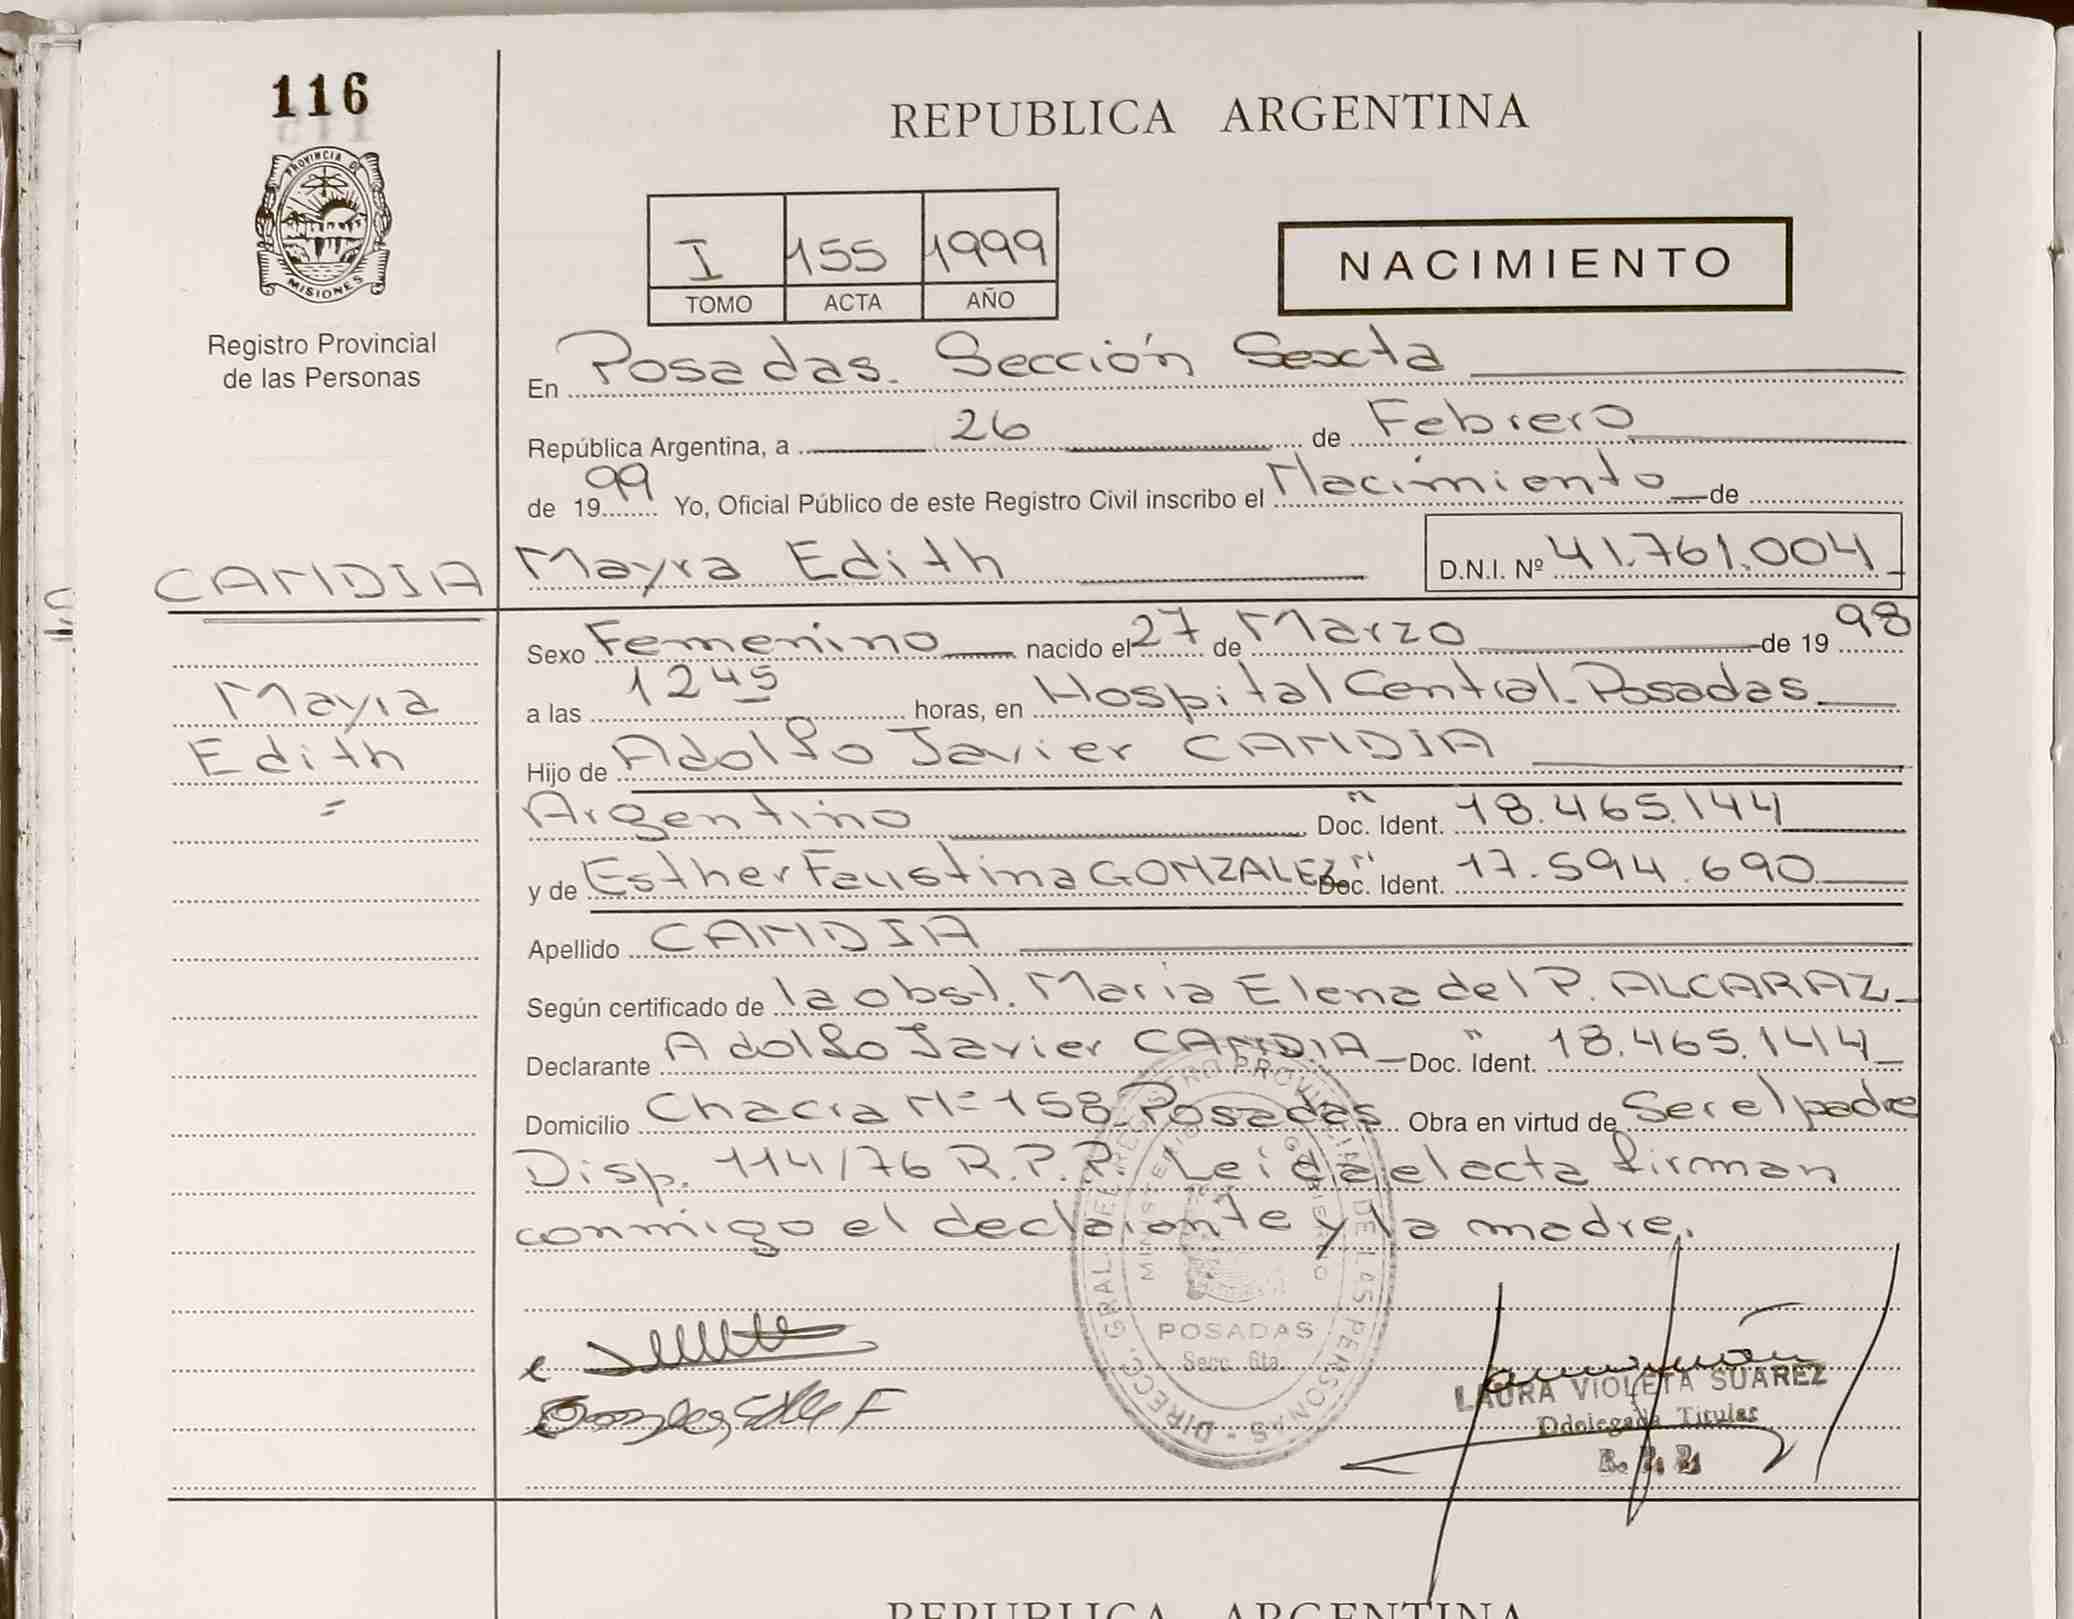 116
PROVINCIA DE
MISIONES
Registro Provincial
de las Personas
REPUBLICA ARGENTINA
I 155 1999
TOMO ACTA AÑO
NACIMIENTO
En Posadas. Sección Sexta
República Argentina, a 26 de Febrero
de 1999 Yo, Oficial Público de este Registro Civil inscribo el Nacimiento de
CANDIA Mayra Edith D.N.I. Nº 41.761.004
Sexo Femenino nacido el 27 de Marzo de 1998
a las 1245 horas, en Hospital Central. Posadas
Mayra
Edith
Hijo de Adolfo Javier CANDIA
Argentino Doc. Ident. 18.465.144
y de Esther Faustina GONZALEZ Doc. Ident. 17.594.690
Apellido CANDIA
Según certificado de la obst. Maria Elena del P. ALCARAZ
Declarante Adolfo Javier CANDIA Doc. Ident. 18.465.144
Domicilio Chacra Nº 158 Posadas Obra en virtud de Ser el padre
Disp. 114/76 R.P.P. Leida el acta firman
conmigo el declarante y la madre.
DIRECC. GRAL. DEL REGISTRO PROVINCIAL DE LAS PERSONAS
MINISTERIO GOBIERNO
POSADAS
Secc. 6ta.
LAURA VIOLETA SUAREZ
Titular
REPUBLICA ARGENTINA